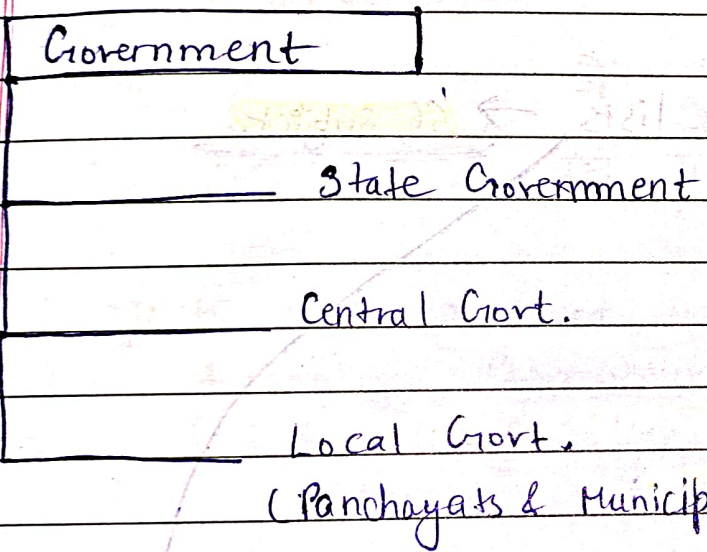 Government
State Government
Central Govt.
Local Govt.
(Panchayats & Municip